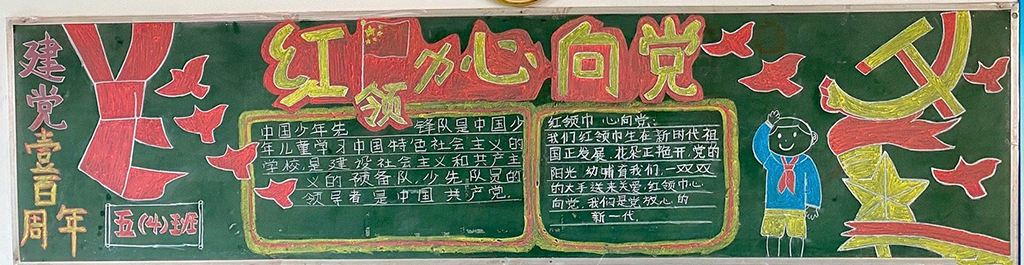 建党壹百周年
五(4)班
红领巾心向党
中国少年先 锋队是中国少
年儿童学习中国特色社会主义的
学校,是建设社会主义和共产主
义的预备队,少先队员的
领导者是中国共产党.
红领巾 心向党:
我们红领巾生在新时代祖
国正发展,花朵正艳开,党的
阳光 幼哺育我们,一双双
的大手送来关爱,红领巾心
向党,我们是党放心的
新一代.